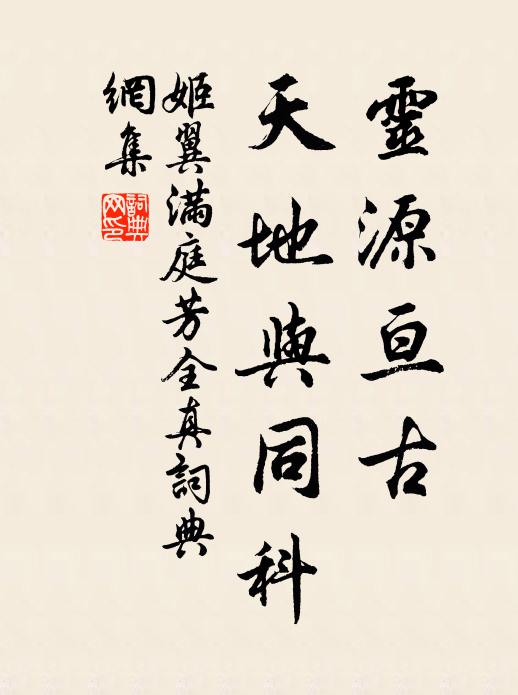 靈源亘古
天地與同科
姬翼滿庭芳全真詞典
網集
詞典
网印